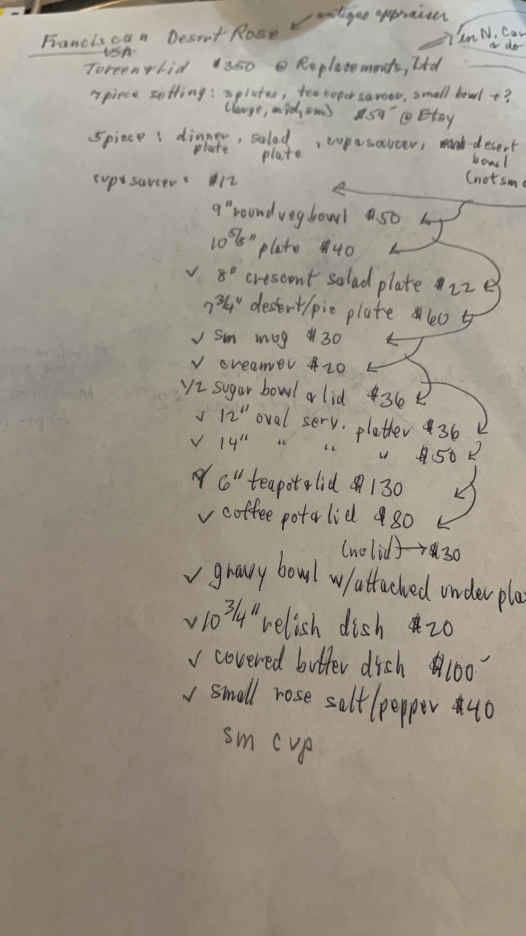 Franciscan Desert Rose ← antique appraiser
USA
in N. Car
Toreen & lid $350 @ Replacements, Ltd
7 piece setting: 3 plates, teacup & saucer, small bowl + ?
(large, mid, sm) $54 @ Etsy
5 piece: dinner plate, salad plate, cup & saucer, desert bowl
(not sm
cup & saucer: $12
9" round veg bowl $50
10 5/8" plate $40
✓ 8" crescent salad plate $22
7 3/4" desert/pie plate $60
✓ sm mug $30
✓ creamer $20
1/2 sugar bowl & lid $36
✓ 12" oval serv. platter $36
✓ 14" " " " $50
6" teapot & lid $130
✓ coffee pot & lid $80
(no lid) → $30
✓ gravy bowl w/attached underpla
✓ 10 3/4" relish dish $20
✓ covered butter dish $100
✓ small rose salt/pepper $40
sm cup